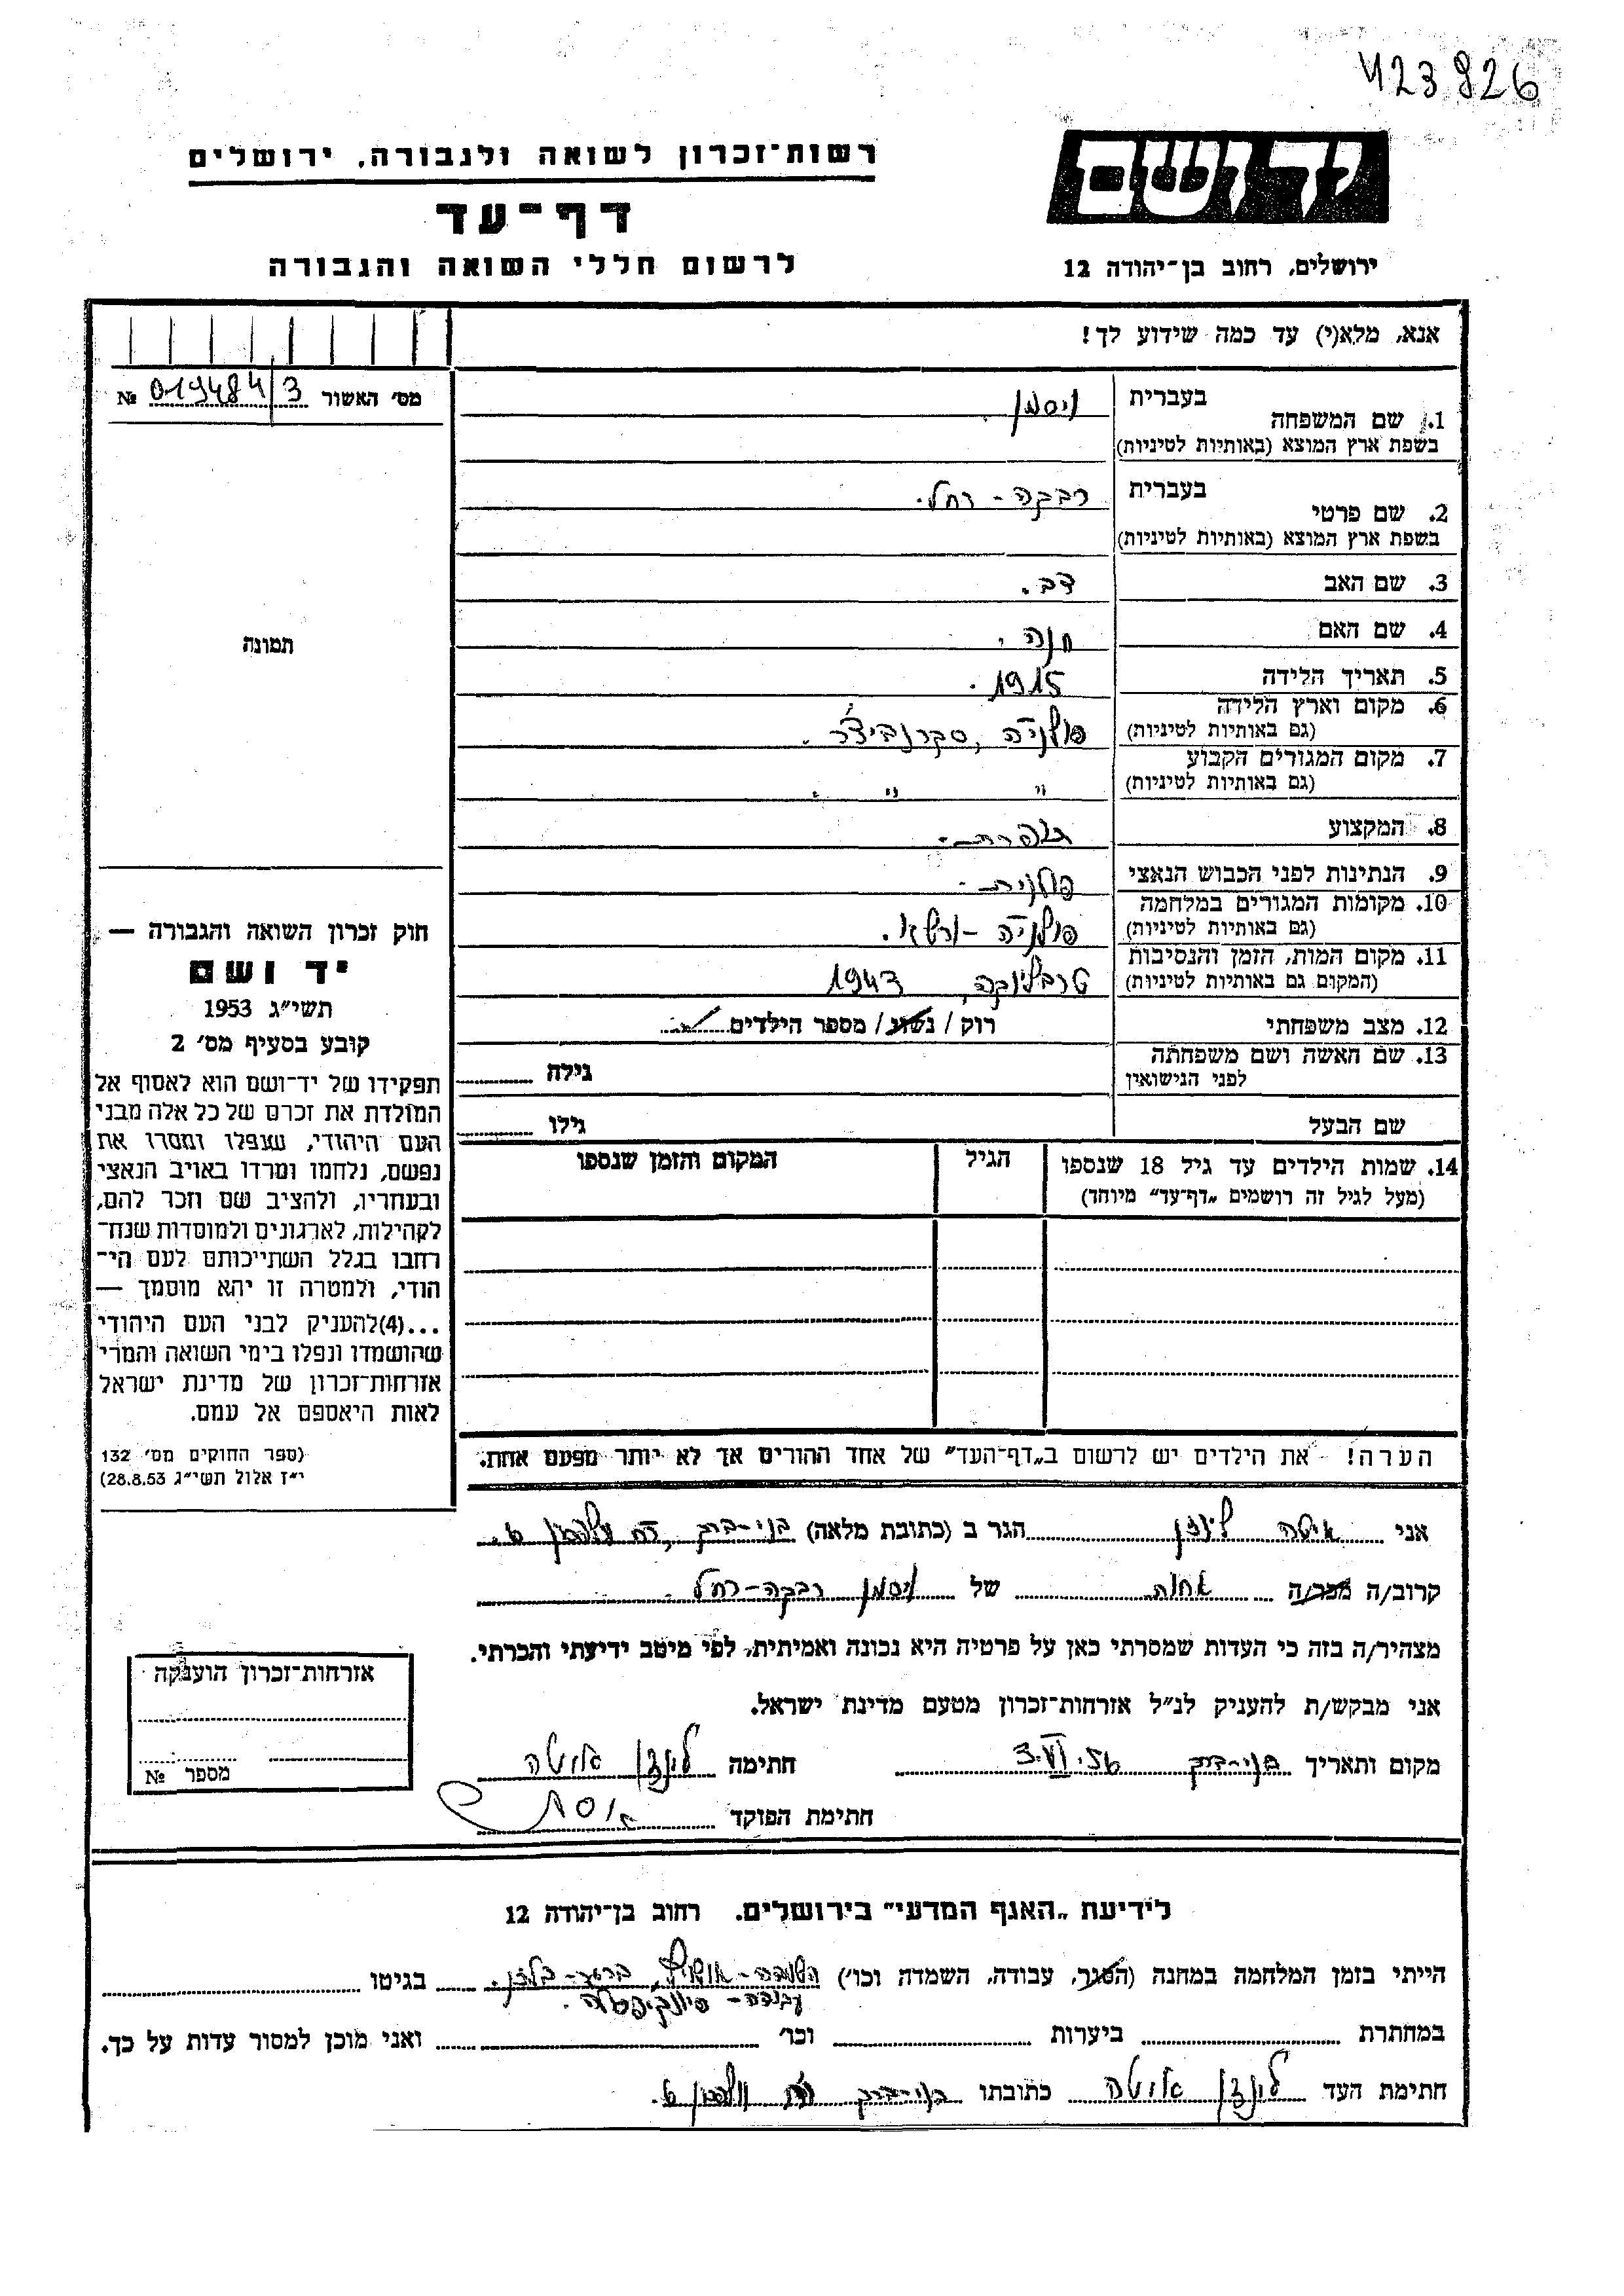 423926
רשות־זכרון לשואה ולגבורה, ירושלים
יד ושם
דף־עד
לרשום חללי השואה והגבורה
ירושלים, רחוב בן־יהודה 12
אנא, מלא(י) עד כמה שידוע לך!
מס׳ האשור 019484/3 №
בעברית ויסמן
1. שם המשפחה
בשפת ארץ המוצא (באותיות לטיניות)
בעברית רבקה - רחל.
2. שם פרטי
בשפת ארץ המוצא (באותיות לטיניות)
3. שם האב דב.
4. שם האם חנה.
תמונה
5. תאריך הלידה 1915.
6. מקום וארץ הלידה פולניה,
(גם באותיות לטיניות)
7. מקום המגורים הקבוע
(גם באותיות לטיניות) " " "
8. המקצוע תופרת.
9. הנתינות לפני הכבוש הנאצי פולנית.
10. מקומות המגורים במלחמה
(גם באותיות לטיניות) פולניה - ורשא.
11. מקום המות, הזמן והנסיבות
(המקום גם באותיות לטיניות) טרבלינקה, 1943
12. מצב משפחתי רוק / נשוי / מספר הילדים
13. שם האשה ושם משפחתה
לפני הנישואין גילה
שם הבעל גילו
חוק זכרון השואה והגבורה —
יד ושם
תשי״ג 1953
קובע בסעיף מס׳ 2
תפקידו של יד־ושם הוא לאסוף אל
המולדת את זכרם של כל אלה מבני
העם היהודי, שנפלו ומסרו את
נפשם, נלחמו ומרדו באויב הנאצי
ובעוזריו, ולהציב שם וזכר להם,
לקהילות, לארגונים ולמוסדות שנח־
רבו בגלל השתייכותם לעם הי־
הודי, ולמטרה זו יהא מוסמך —
...(4)להעניק לבני העם היהודי
שהושמדו ונפלו בימי השואה והמרי
אזרחות־זכרון של מדינת ישראל
לאות היאספם אל עמם.
(ספר החוקים מס׳ 132
י״ז אלול תשי״ג 28.8.53)
14. שמות הילדים עד גיל 18 שנספו הגיל המקום והזמן שנספו
(מעל לגיל זה רושמים „דף־עד״ מיוחד)
הערה! - את הילדים יש לרשום ב„דף־העד״ של אחד ההורים אך לא יותר מפעם אחת.
אני איטה לינדן הגר ב (כתובת מלאה) בני-ברק,
קרוב/ה מכר/ה אחות של ויסמן רבקה-רחל.
מצהיר/ה בזה כי העדות שמסרתי כאן על פרטיה היא נכונה ואמיתית, לפי מיטב ידיעתי והכרתי.
אני מבקש/ת להעניק לנ״ל אזרחות־זכרון מטעם מדינת ישראל.
מקום ותאריך בני-ברק 3.VI.56 חתימה לינדן איטה
חתימת הפוקד
אזרחות־זכרון הוענקה
מספר №
לידיעת „האגף המדעי״ בירושלים. רחוב בן־יהודה 12
הייתי בזמן המלחמה במחנה (הסגר, עבודה, השמדה וכו׳) השמדה - אושויץ, ברגן-בלזן. בגיטו
עבודה -
במחתרת ביערות וכו׳ ואני מוכן למסור עדות על כך.
חתימת העד לינדן איטה כתובתו בני-ברק